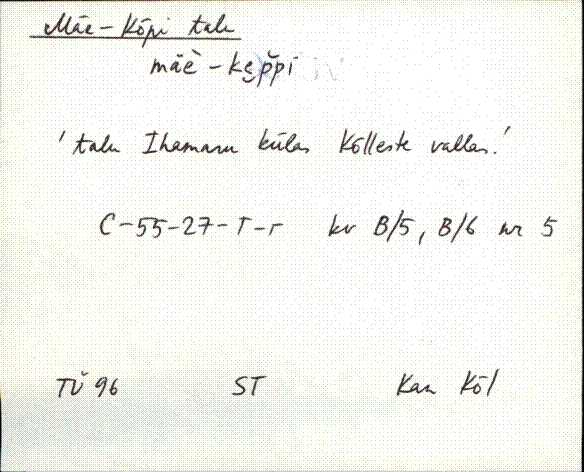 Mäe-Kõpi talu
mäe̬ - ke̮p̆pi
'talu Ihamaru külas Kõlleste vallas.'
C-55-27-T-r kv B/5, B/6 nr 5
TÜ 96 ST Kan Kõl